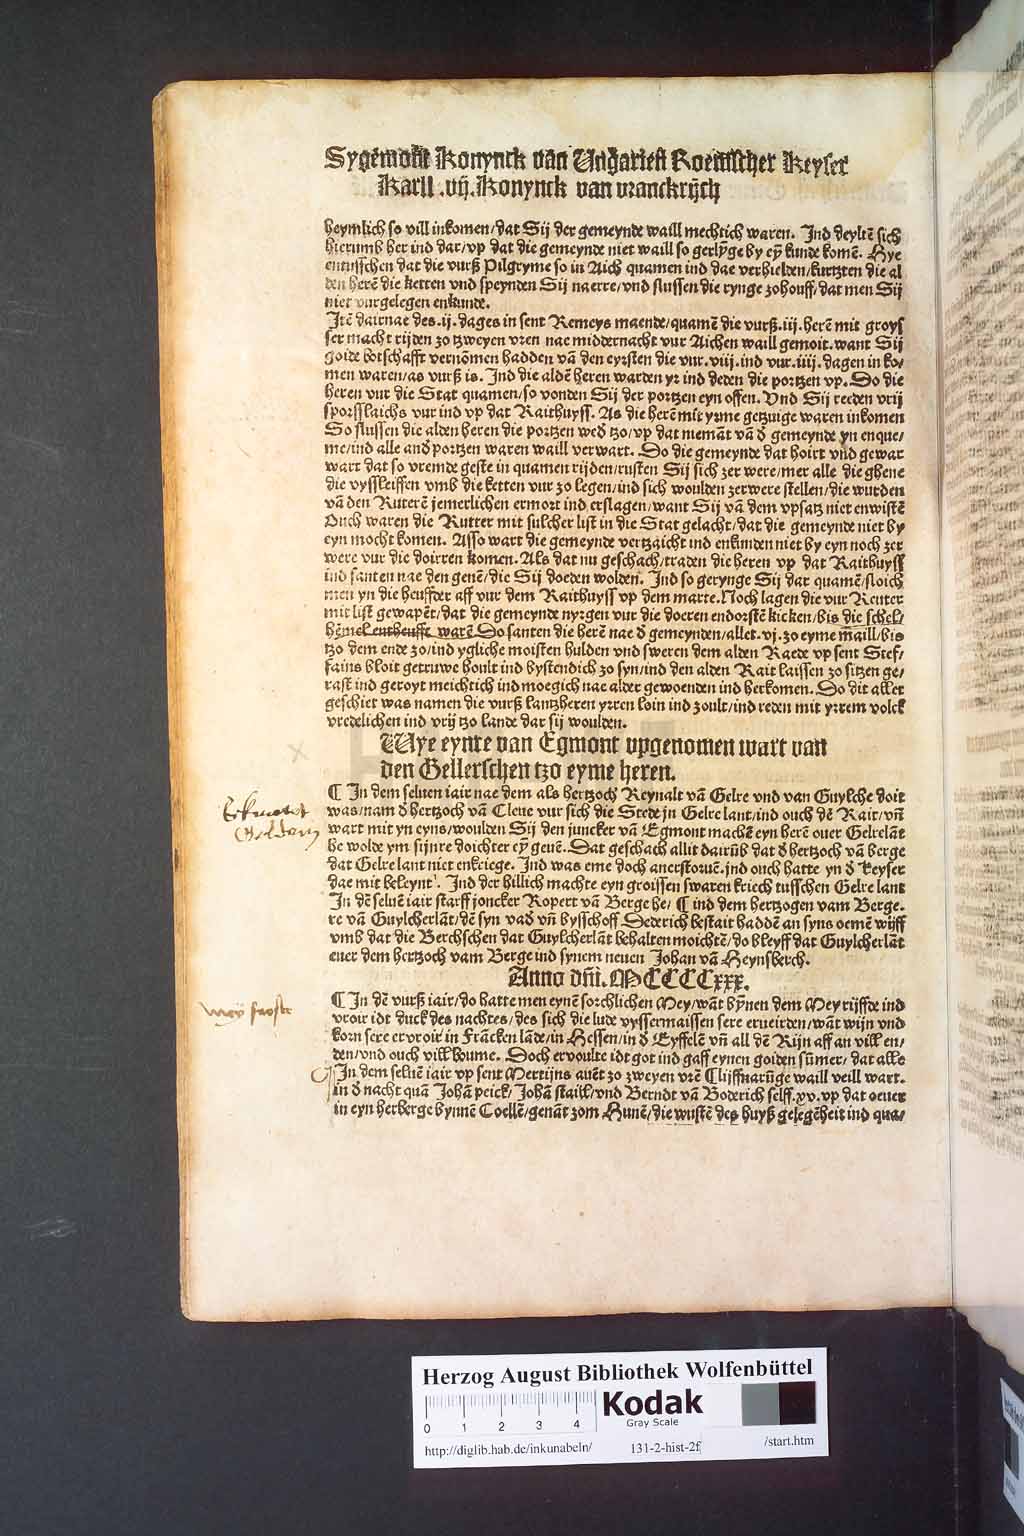 Sygemont Konynck van Ungarien Roemscher Keyser
Karll .vij. Konynck van vranckrijch
heymlich so vill inkomen/dat Sij der gemeynde waill mechtich waren. Ind deyltē sich
hierumb her ind dar/vp dat die gemeynde niet waill so gerlÿge by eÿ kunde komē. Hye
entusschen dat die vurß Pilgryme so in Aich quamen ind dae verhielden/kurtzten die al
den herē die ketten vnd speynden Sij naerre/vnd slussen die rynge zohouff/dat men Sij
niet vurgelegen enkunde.
Itē dairnae des .ij. dages in sent Remeys maende/quamē die vurß .iij. herē mit groys
ser macht rijden zo tzweyen vren nae middernacht vur Aichen waill gemoit. want Sij
goide botschafft vernōmen hadden vā den eyrsten die vur .viij. ind vur .iiij. dagen in ko/
men waren/as vurß is. Ind die aldē heren warden yr ind deden die portzen vp. Do die
heren vur die Stat quamen/so vonden Sij der portzen eyn offen. Vnd Sij reeden vrij
sporsslaichs vur ind vp dat Raithuyss. As die herē mit yrme getzuige waren inkomen
So slussen die alden heren die portzen wed̄ tzo/vp dat niemāt vā d̄ gemeynde yn enque/
me/ind alle and̄ portzen waren waill verwart. Do die gemeynde dat hoirt vnd gewar
wart dat so vremde geste in quamen rijden/rusten Sij sich zer were/mer alle die ghene
die vyssleiffen vmb die ketten vur zo legen/ind sich woulden zerwere stellen/die wurden
vā den Ruterē jemerlichen ermort ind erslagen/want Sij vā dem vpsatz niet enwistē
Ouch waren die Rutter mit sulcher list in die Stat gelacht/dat die gemeynde niet by
eyn mocht komen. Also wart die gemeynde vertzaicht ind enkunden niet by eyn noch zer
were vur die doirren komen. Als dat nu geschach/traden die heren vp dat Raithuyss
ind santen nae den genē/die Sij doeden wolden. Ind so gerynge Sij dar quamē/sloich
men yn die heuffder aff vur dem Raithuyss vp dem marte. Noch lagen die vur Reuter
mit list gewapēt/dat die gemeynde nyrgen vur die doeren endorstē kicken/bis die schel/
hēme Leutheuffe warē Do santen die herē nae d̄ gemeynden/allet .vj. zo eyme maill/bis
tzo dem ende zo/ind ygliche moisten hulden vnd sweren dem alden Raede vp sent Stef/
fains bloit getruwe hoult ind bystendich zo syn/ind den alden Rait laissen zo sitzen ge/
rast ind geroyt meichtich ind moegich nae alder gewoenden ind herkomen. Do dit allet
geschiet was namen die vurß lantzheren yrren loin ind zoult/ind reden mit yrrem volck
vredelichen ind vrij tzo lande dar sij woulden.
Wye eynre van Egmont vpgenomen wart van
den Gellerschen tzo eyme heren.
¶ In dem seluen iair nae dem als hertzoch Reynalt vā Gelre vnd van Guylche doit
was/nam d̄ hertzoch vā Cleue vur sich die Stede in Gelre lant/ind ouch dē Rait/vn̄
wart mit yn eyns/woulden Sij den juncker vā Egmont machē eyn herē ouer Gelrelāt
he wolde ym sijnre doichter eÿ geuē. Dat geschach allit dairūb dat d̄ hertzoch vā berge
dat Gelre lant niet enkriege. Ind was eme doch anerstoruē. jnd ouch hatte yn d̄ keyser
dae mit beleynt. Ind der billich machte eyn groissen swaren kriech tusschen Gelre lant
In dē seluē iair starff joncker Ropert vā Berge he/ ¶ ind dem hertzogen vam Berge.
re vā Guylcherlāt/dē syn vad̄ vn̄ bysschoff Dederich bestait haddē an syns oemē wijff
vmb dat die Berchschen dat Guylcherlāt behalten moichtē/do bleyff dat Guylcherlāt
euer dem hertzoch vam Berge ind synem neuen Johan vā Heynsberch.
Anno dn̄i. MCCCCxxx.
¶ In dē vurß iair/do hatte men eynē sorchlichen Mey/wāt bÿnen dem Mey rijffde ind
vroir idt duck des nachtes/des sich die lude vyssermaissen sere erueirden/wāt wijn vnd
korn sere ervroir in Frācken lāde/in Hessen/in d̄ Eyffelē vn̄ all dē Rijn aff an vill en/
den/vnd ouch vill boume. Doch ervoulte idt got ind gaff eynen goiden sūmer/dat alle
In dem seluē iair vp sent Mertijns auēt zo zweyen vrē Clijffnarūge waill veill wart.
in d̄ nacht quā Johā peick/Johā staill/vnd Berndt vā Boderich selff .xv. vp dat oeuer
in eyn herberge bynnē Coellē/genāt zom Hunē/die wustē des huyß gelegēheit ind qua/
Meÿ froste
Herzog August Bibliothek Wolfenbüttel
0 1 2 3 4
Kodak
Gray Scale
http://diglib.hab.de/inkunabeln/ 131-2-hist-2f /start.htm